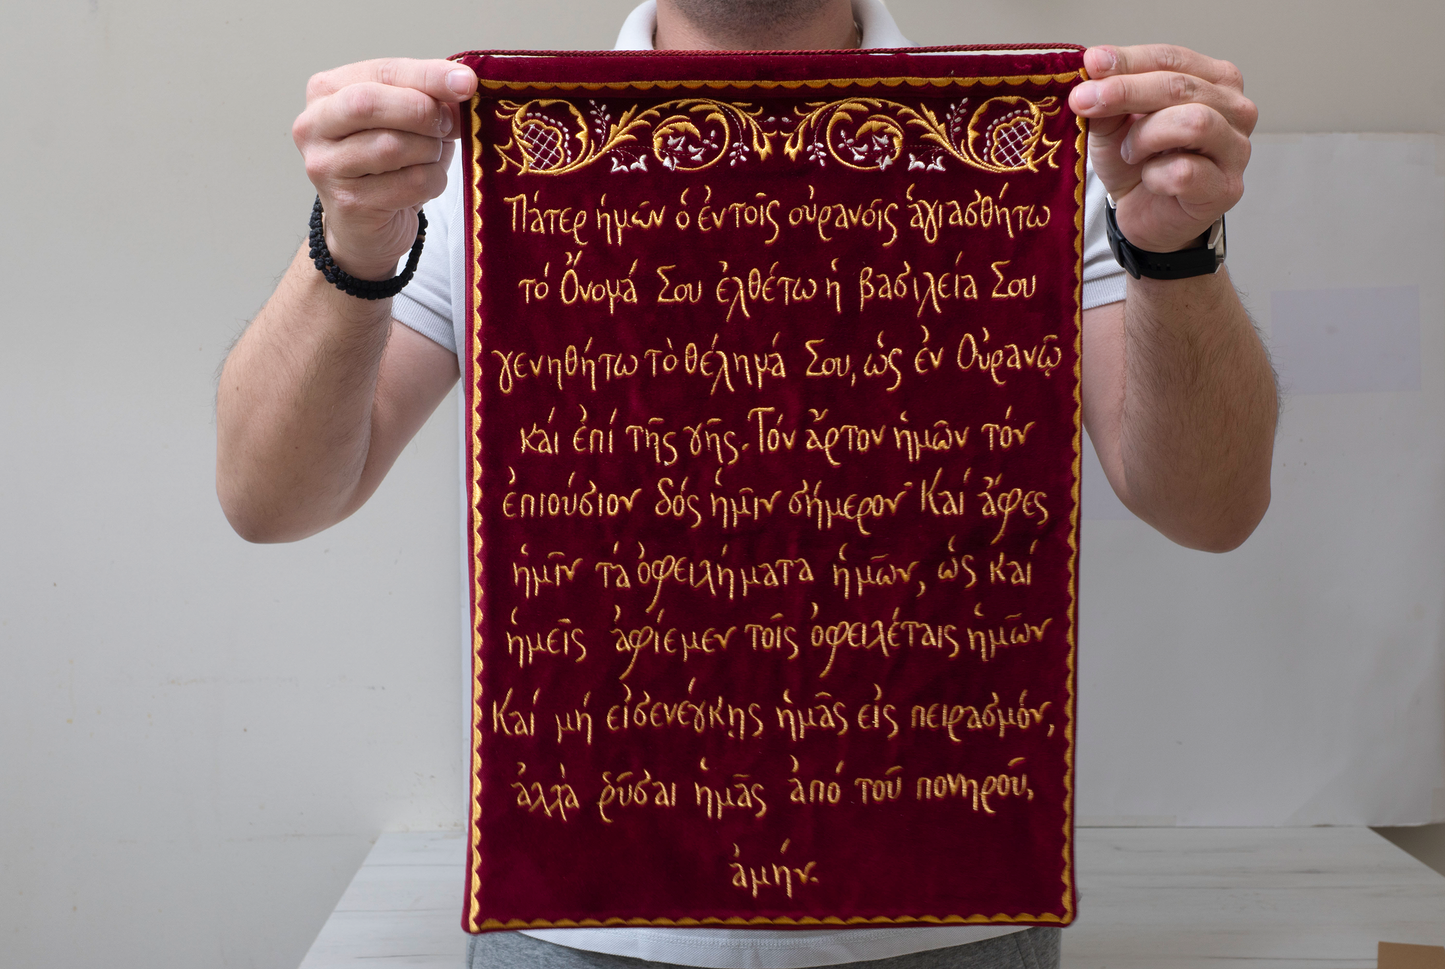 Πάτερ ἡμῶν ὁ ἐν τοῖς οὐρανοῖς ἁγιασθήτω
τό Ὄνομά Σου ἐλθέτω ἡ βασιλεία Σου
γενηθήτω τὸ θέλημά Σου, ὡς ἐν Οὐρανῷ
καί ἐπί τῆς γῆς. Τόν ἄρτον ἡμῶν τόν
ἐπιούσιον δός ἡμῖν σήμερον· Καί ἄφες
ἡμῖν τά ὀφειλήματα ἡμῶν, ὡς καί
ἡμεῖς ἀφίεμεν τοῖς ὀφειλέταις ἡμῶν
Καί μή εἰσενέγκῃς ἡμᾶς εἰς πειρασμόν,
ἀλλὰ ῥῦσαι ἡμᾶς ἀπό τοῦ πονηροῦ,
ἀμήν.